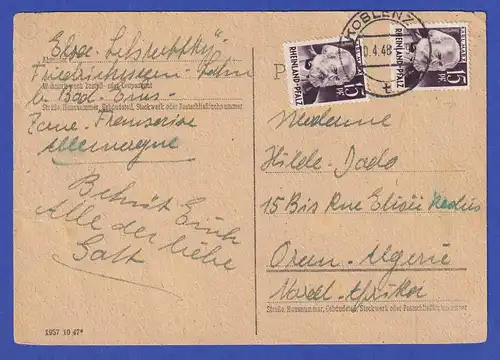 Absender:
Friedrichssegen - Lahn
b. Bad-Ems-
Wohnort, auch Zustell- oder Leitpostamt
Straße, Hausnummer, Gebäudeteil, Stockwerk oder Postschließfachnummer
Zone Francaise
Allemagne
Behüt Euch
Alle der liebe
Gott
1957 10 47*
KOBLENZ
.4.48
RHEINLAND-PFALZ
15 PF
RHEINLAND-PFALZ
15 PF
P
Madame
Hilde Dado
15 Bis Rue Elisée Reclus
Oran - Algerie
Nord-Afrika
Straße, Hausnummer, Gebäudeteil, Stockwerk oder Postschließfachnummer